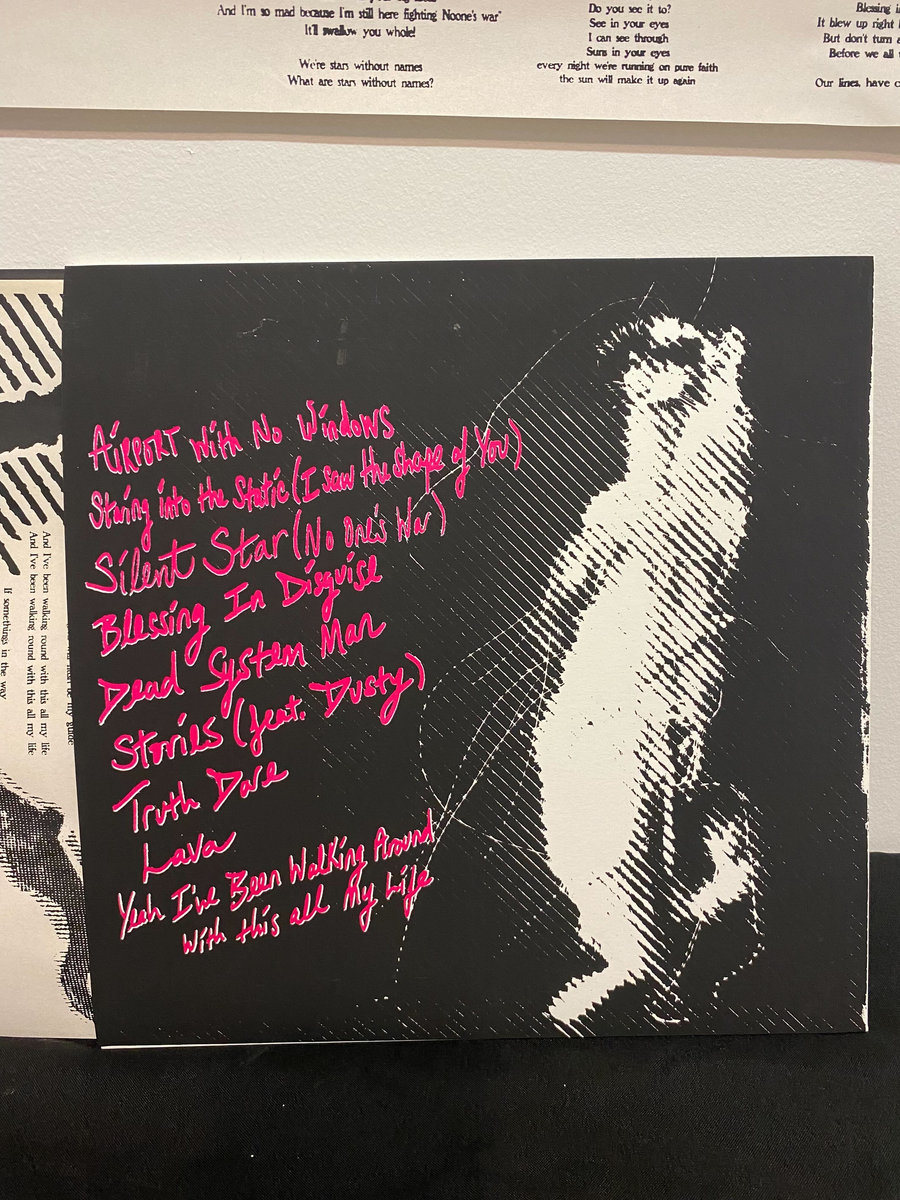 And I'm so mad because I'm still here fighting Noone's war"
It'll swallow you whole!
We're stars without names
What are stars without names?
Do you see it to?
See in your eyes
I can see through
Suns in your eyes
every night we're running on pure faith
the sun will make it up again
Blessing
It blew up right
But don't turn
Before we all
Our lines, have
AIRPORT With No Windows
Staring into the Static (I saw the shape of You)
Silent Star (No One's War)
Blessing In Disguise
Dead System Man
Stories (feat. Dusty)
Truth Dare
Lava
Yeah I've Been Walking Around
With this all My Life
And I've been walking round with this all my life
And I've been walking round with this all my life
If somethings in the way
be my guide